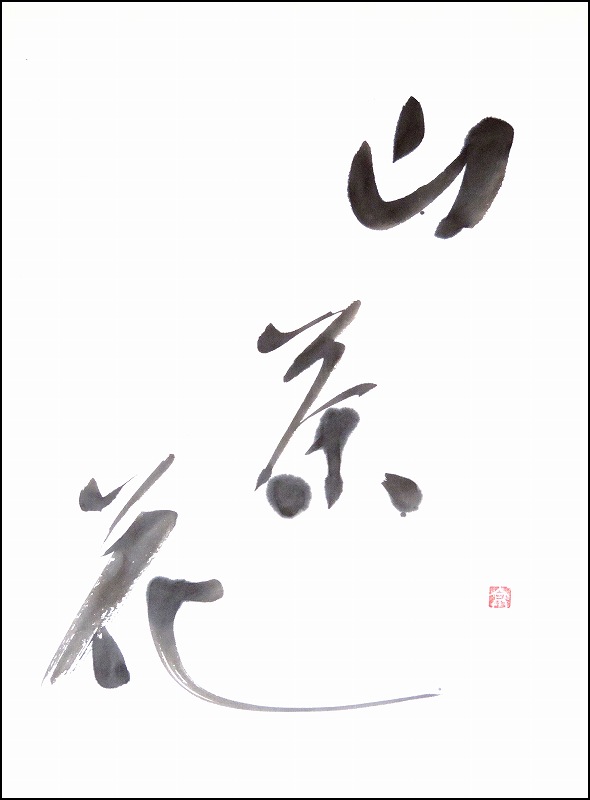 山
茶
花